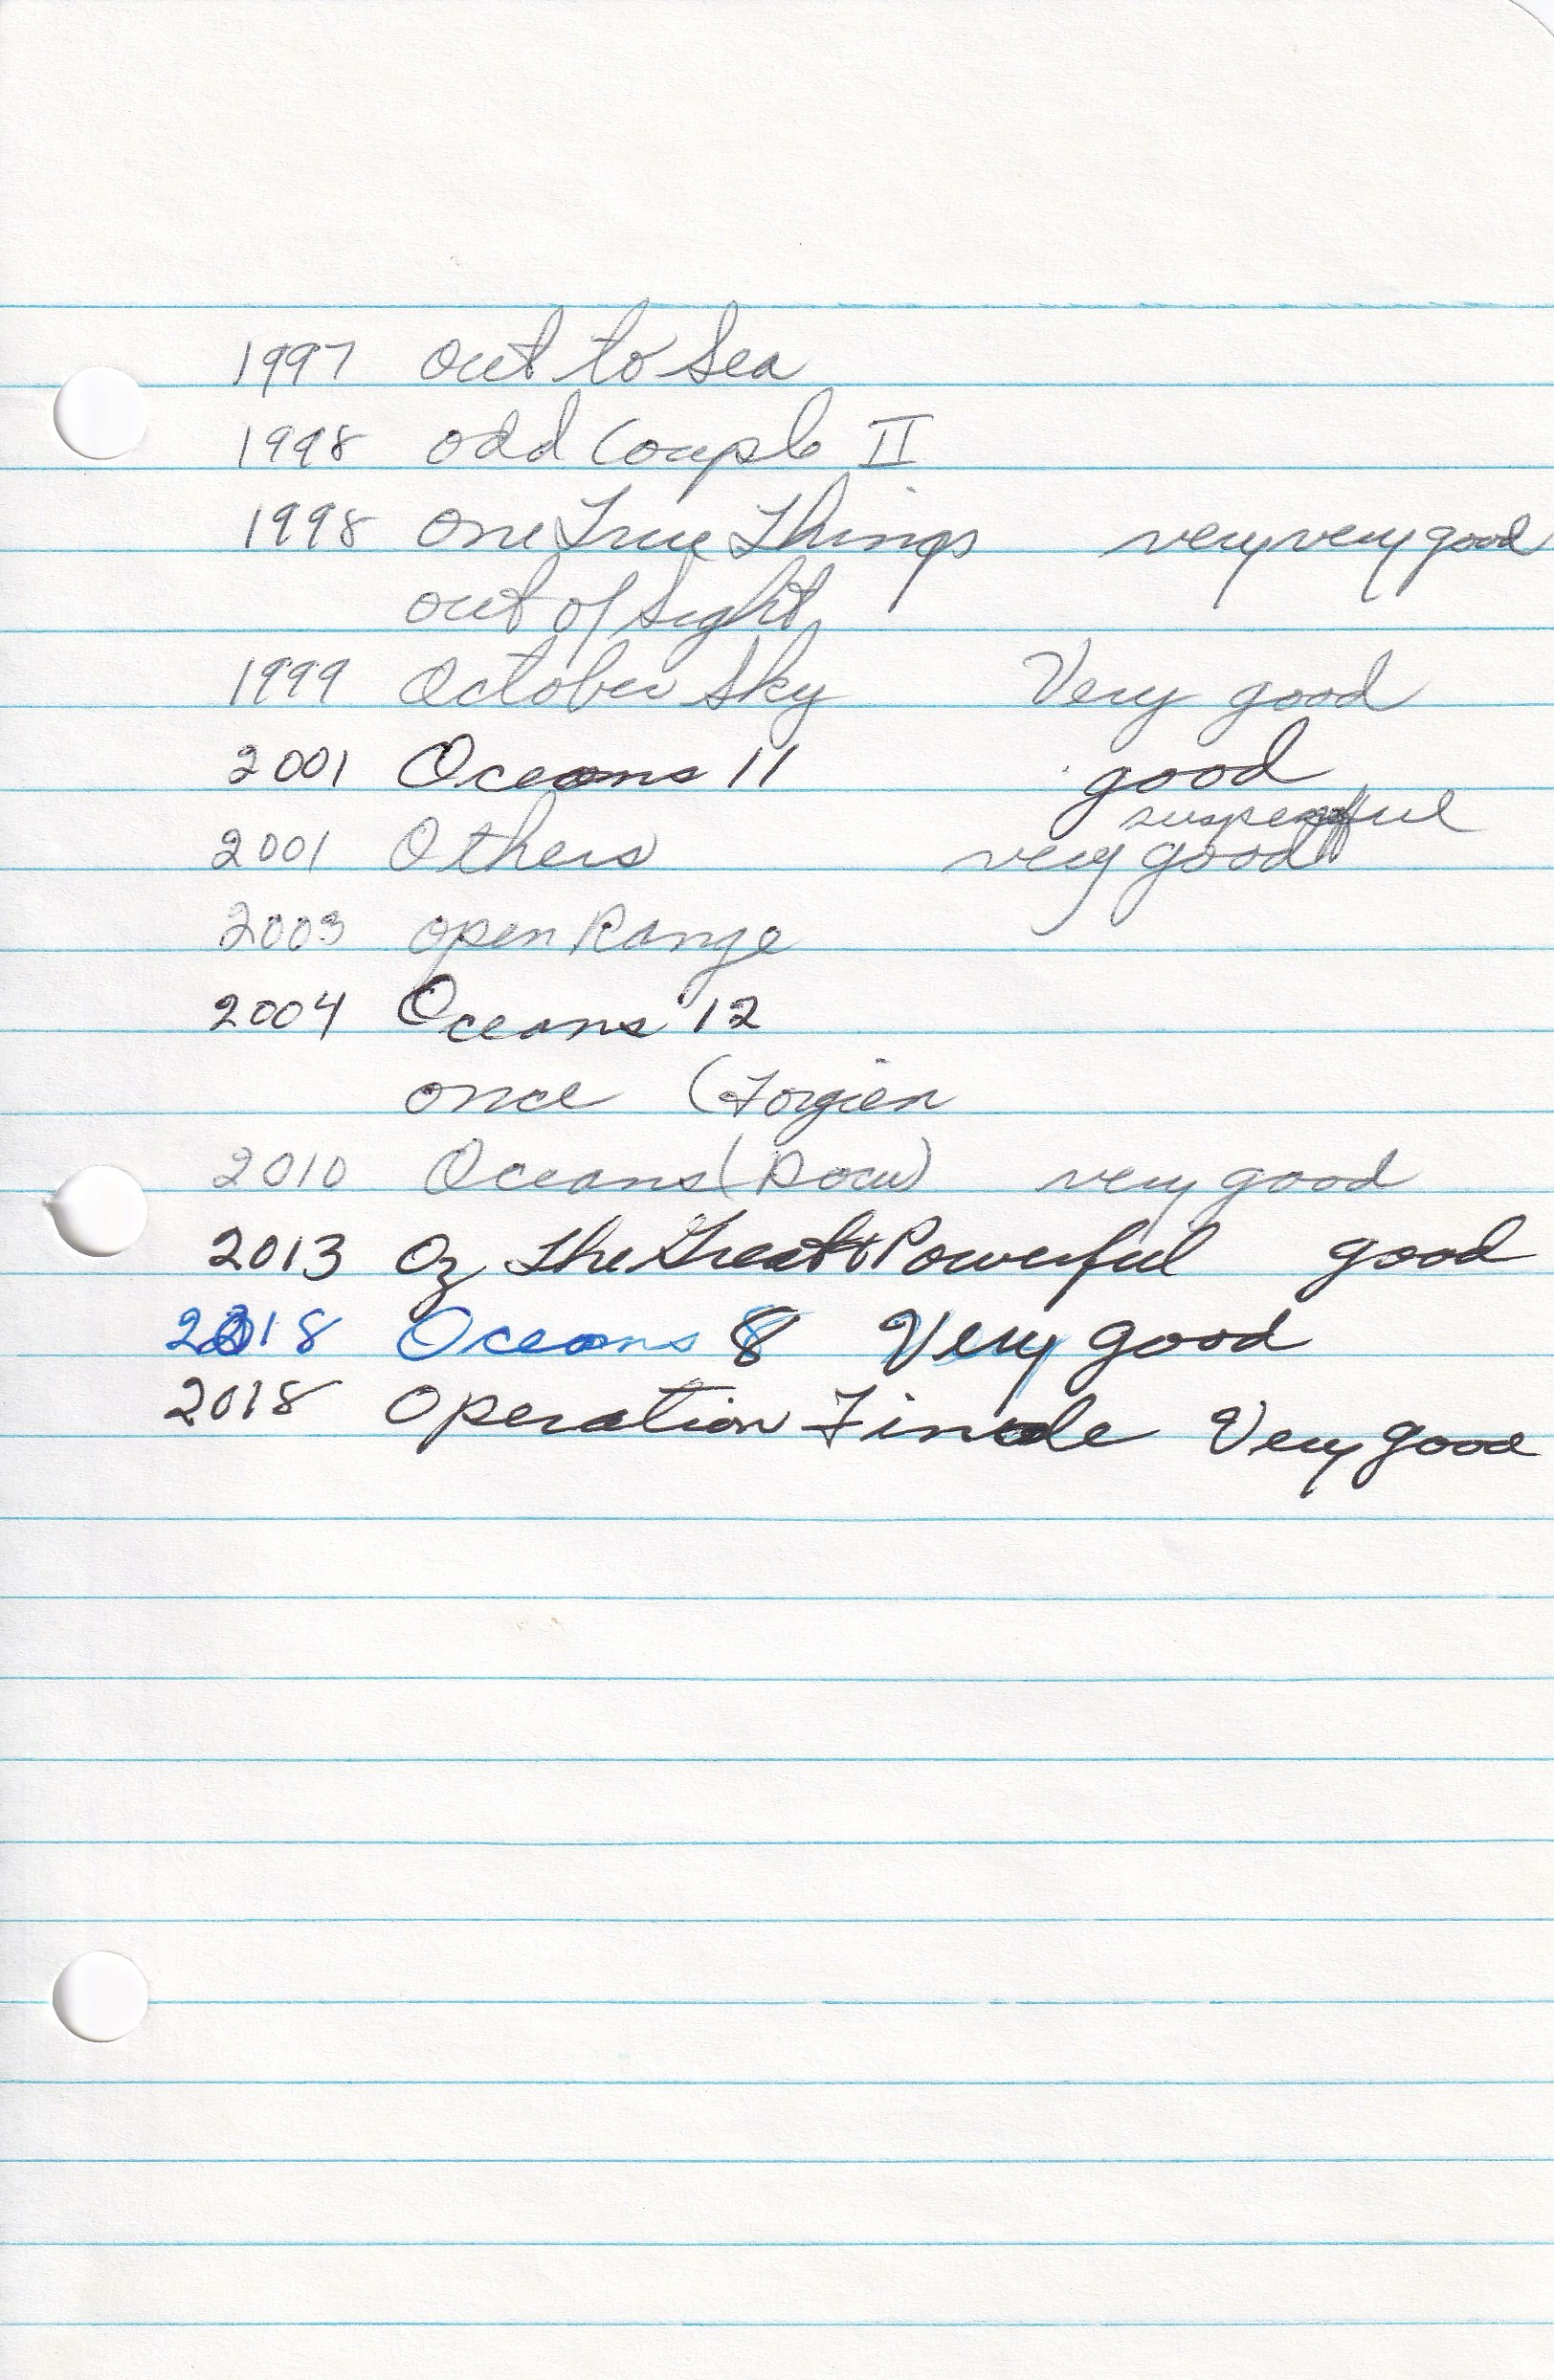 1997 out to Sea
1998 odd Couple II
1998 One True Things very very good
out of Sight
1999 October Sky Very good
2001 Oceans 11 good
2001 Others suspensful
very good
2003 open Range
2004 Oceans 12
once (Forgien
2010 Oceans (Docu) very good
2013 Oz The Great & Powerful good
2018 Oceans 8 Very good
2018 Operation Finale Very good